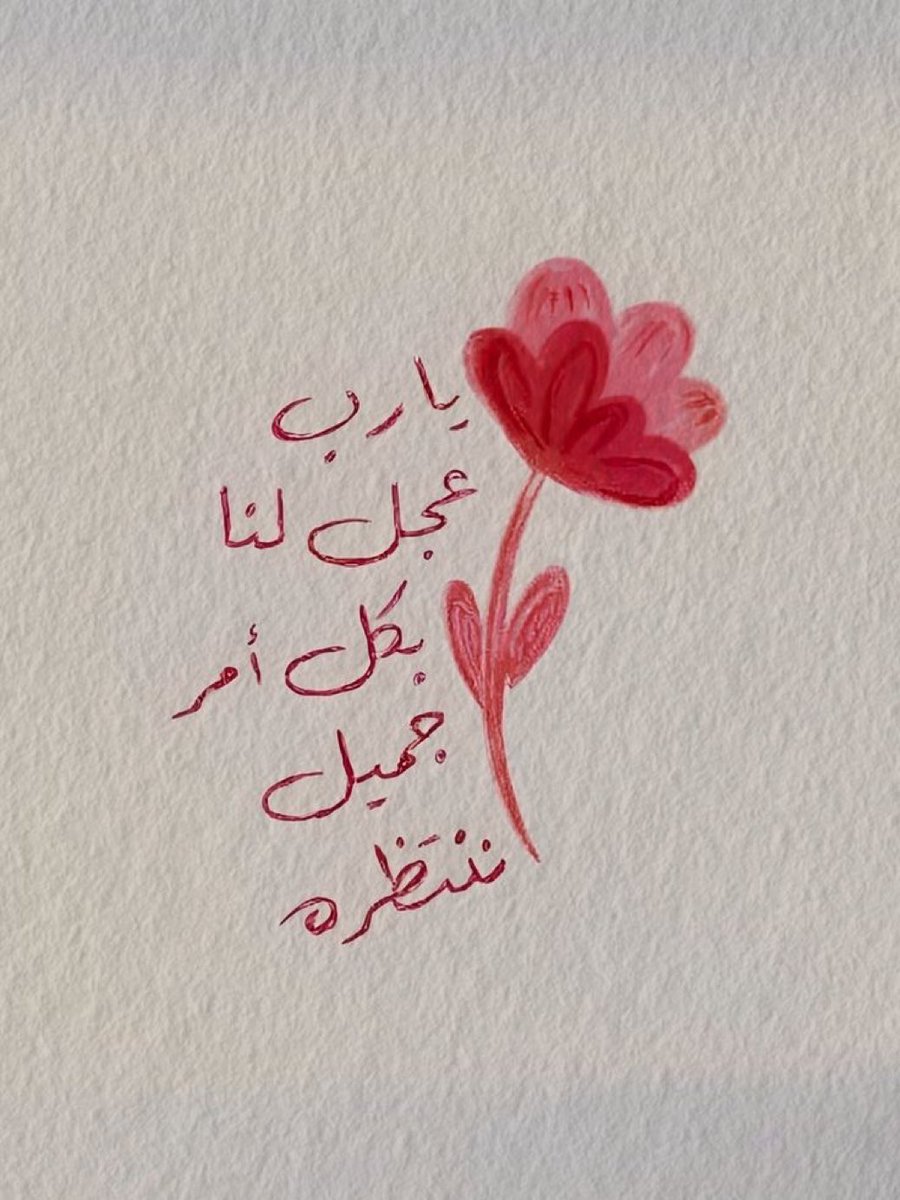 يارب
عجل لنا
بكل أمر
جميل
ننتظره